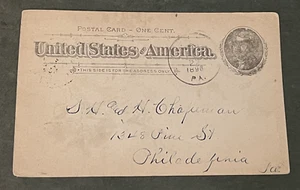 POSTAL CARD – ONE CENT.
United States of America.
THIS SIDE IS FOR THE ADDRESS ONLY
PA.
S. H. & H. Chapman
1348 Pine St
Philadelphia